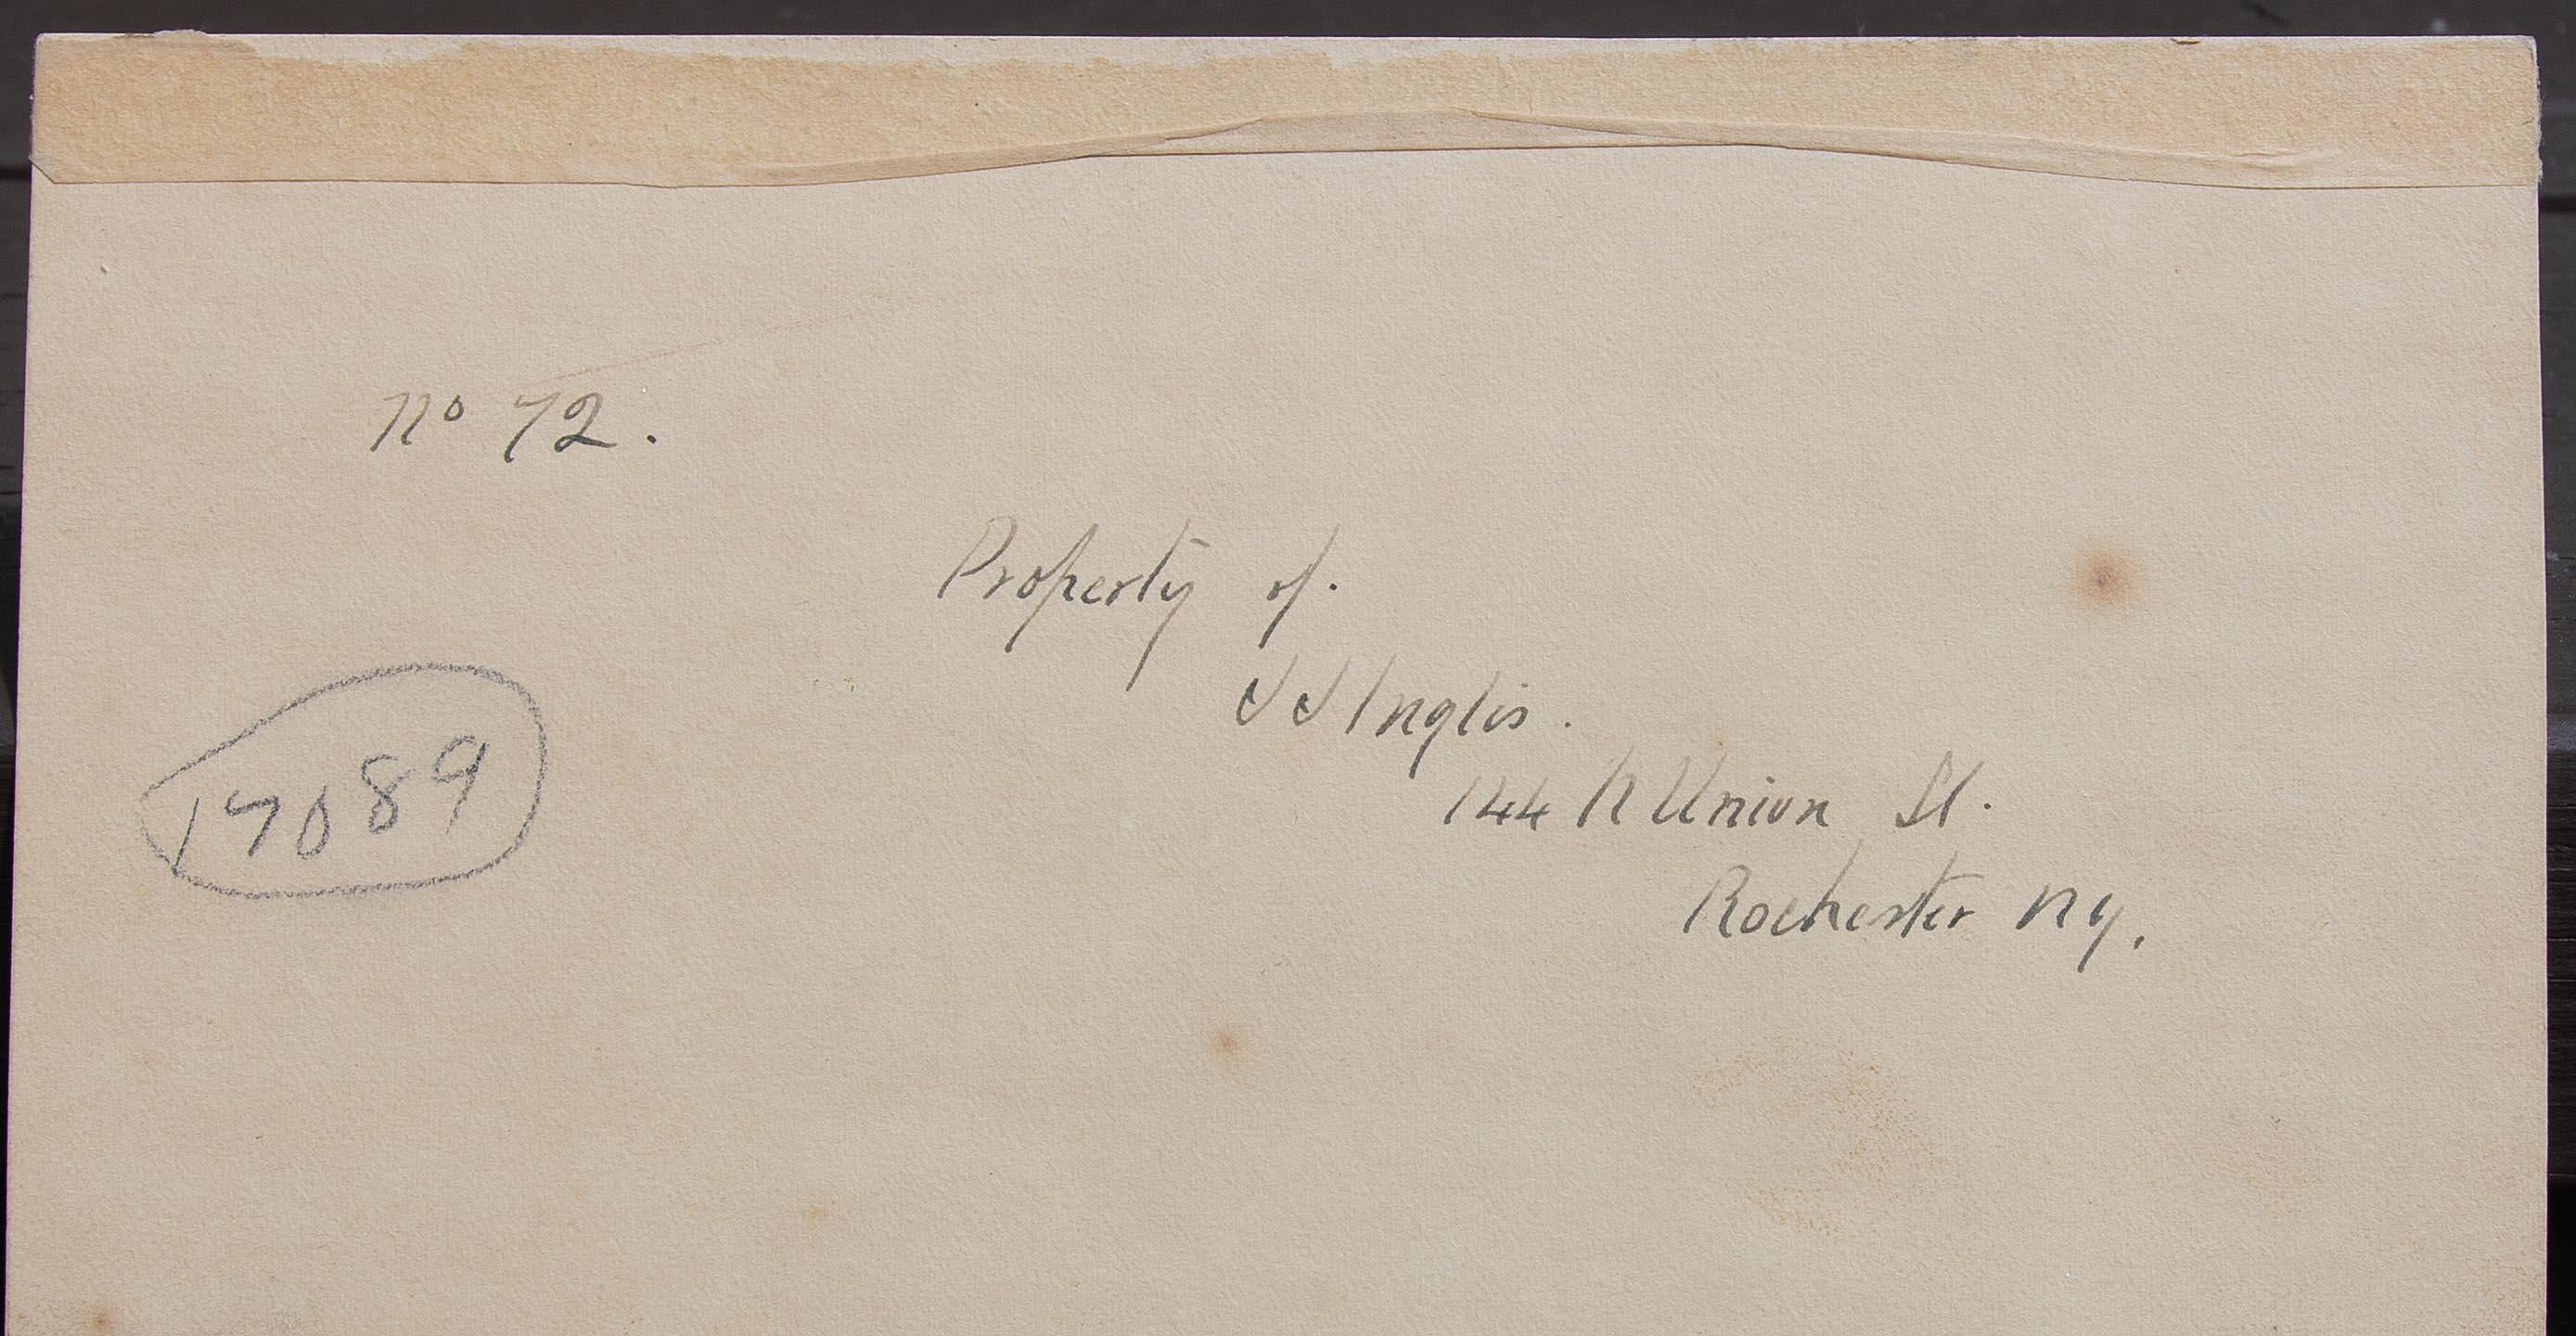 No 72.
Property of.
J J Inglis.
17089
144 N Union St.
Rochester NY.